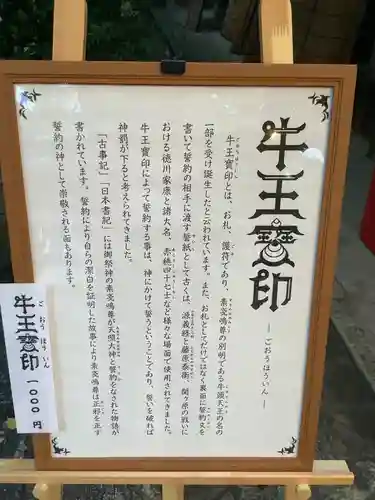 牛王寶印
― ごおうほういん ―
牛王寶印とは、お札、護符であり、素戔嗚尊の別明である牛頭天王の名の
一部を受け誕生したと云われています。また、お札としてだけではなく裏面に誓約文を
書いて誓約の相手に渡す誓紙として古くは、源義経と藤原泰衡、関ヶ原の戦いに
おける徳川家康と諸大名、赤穂四十七士など様々な場面で使用されてきました。
牛王寶印によって誓約する事は、神にかけて誓うということであり、誓いを破れば
神罰が下ると考えられてきました。
「古事記」「日本書記」には御祭神の素戔嗚尊が天照大神と誓約をなされた物語が
書かれています。誓約により自らの潔白を証明した故事により素戔嗚尊は正邪を正す
誓約の神として崇敬される面もあります。
牛王寶印
ごおうほういん
一〇〇〇円